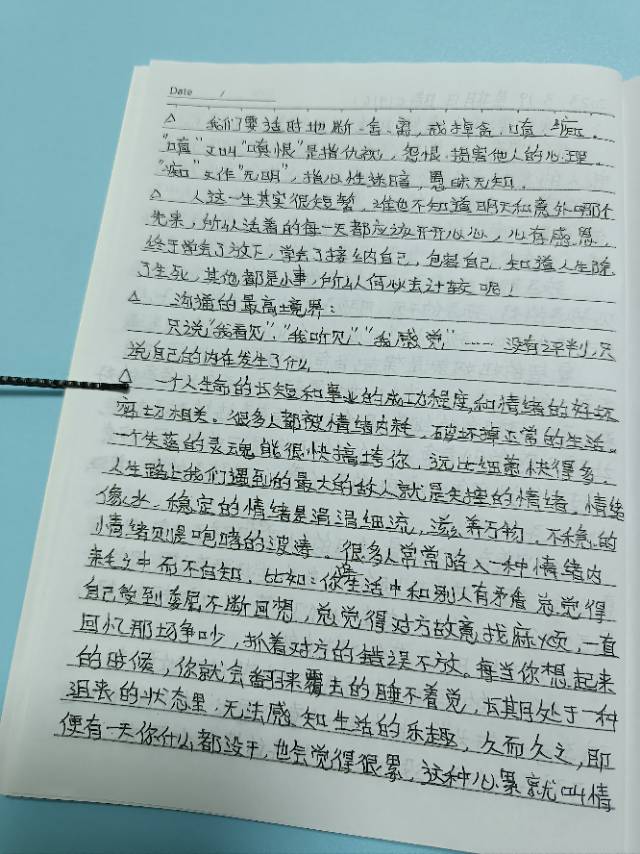 Date /
△ 我们要适时地断、舍、离，戒掉贪、嗔、痴。
"嗔"又叫"嗔恨"是指仇视，怨恨、损害他人的心理。
"痴"又作"无明"，指心性迷暗，愚昧无知。
△ 人这一生其实很短暂，谁也不知道明天和意外哪个
先来，所以活着的每一天都应该开开心心，心存感恩，
终于学会了放下，学会了接纳自己，包容自己，知道人生除
了生死，其他都是小事，所以人何必去计较呢！
△ 沟通的最高境界：
只说"我看见"、"我听见"、"我感觉"……没有评判，只
说自己的内在发生了什么
△ 一个人生命的长短和事业的成功程度，和情绪的好坏
密切相关。很多人都被情绪内耗，破坏掉正常的生活。
一个失落的灵魂能很快搞垮你，远比细菌快得多，
人生路上我们遇到的最大的敌人就是失控的情绪，情绪
像水，稳定的情绪是涓涓细流，滋养万物，不稳的
情绪则是咆哮的波涛。很多人常常陷入一种情绪内
耗之中而不自知，比如：你在生活中和别人有矛盾总觉得
自己受到委屈不断回想，总觉得对方故意找麻烦，一直
回忆那场争吵，抓着对方的错误不放。每当你想起来
的时候，你就会翻来覆去的睡不着觉，长期处于一种
沮丧的状态里，无法感知生活的乐趣，久而久之，即
便有一天你什么都没干，也会觉得很累，这种心累就叫情